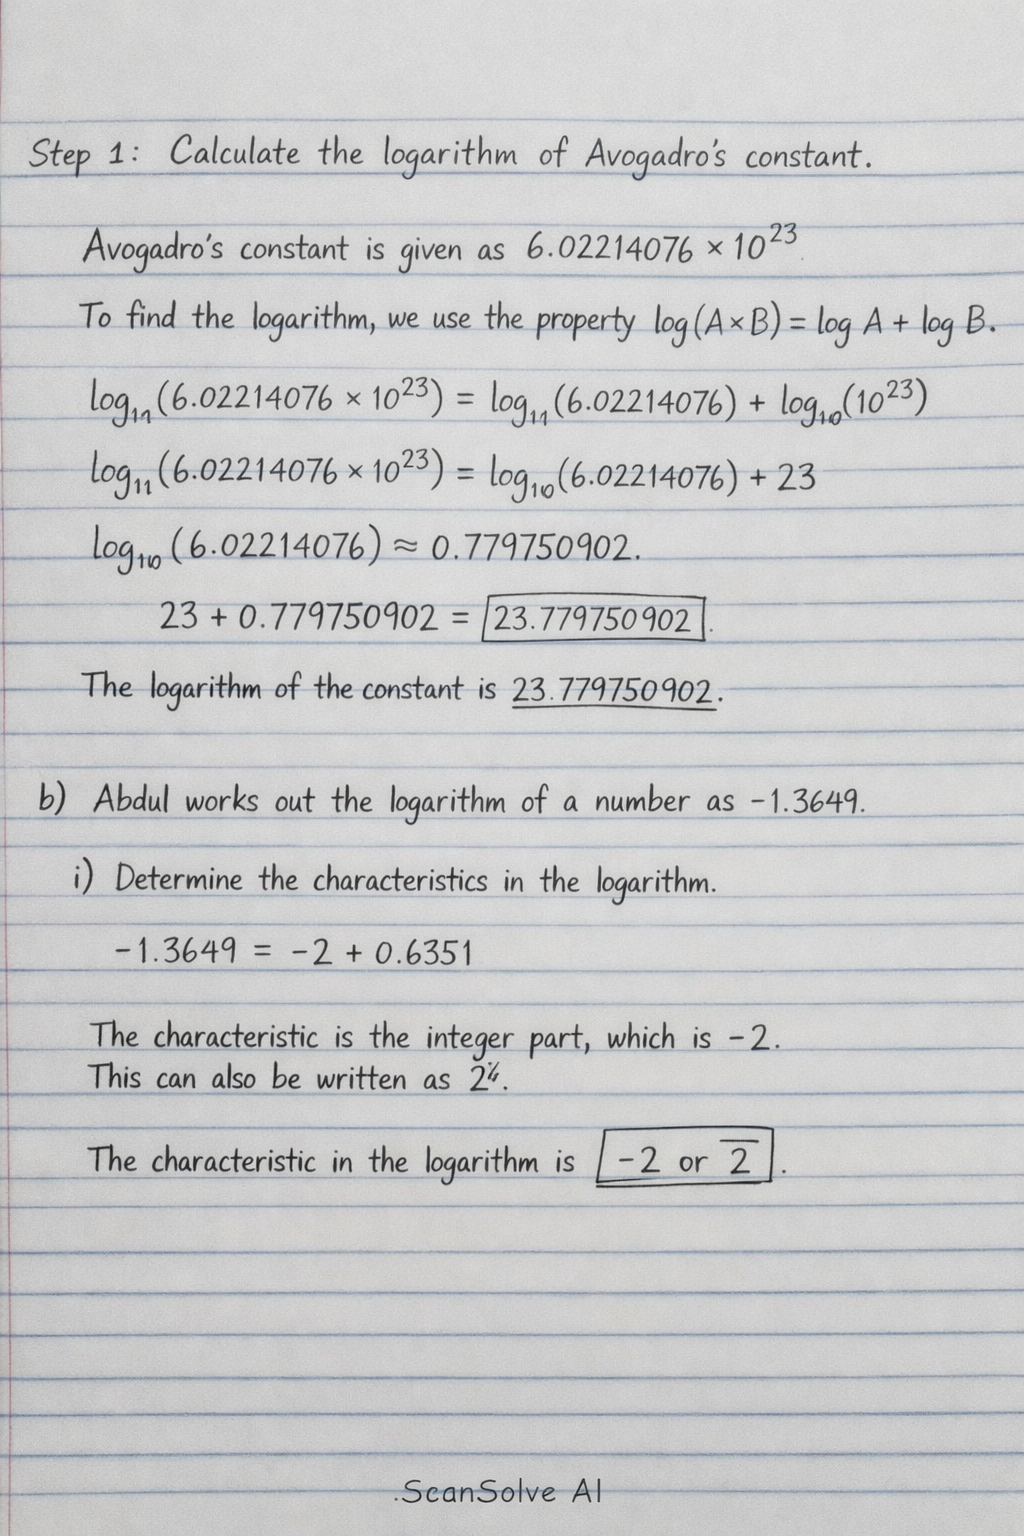 Step 1: Calculate the logarithm of Avogadro's constant.
Avogadro's constant is given as 6.02214076 × 10²³
To find the logarithm, we use the property log(A×B) = log A + log B.
log₁₁(6.02214076 × 10²³) = log₁₁(6.02214076) + log₁₀(10²³)
log₁₁(6.02214076 × 10²³) = log₁₀(6.02214076) + 23
log₁₀(6.02214076) ≈ 0.779750902.
23 + 0.779750902 = 23.779750902.
The logarithm of the constant is 23.779750902.
b) Abdul works out the logarithm of a number as -1.3649.
i) Determine the characteristics in the logarithm.
-1.3649 = -2 + 0.6351
The characteristic is the integer part, which is -2.
This can also be written as
The characteristic in the logarithm is -2 or 2̅.
.ScanSolve AI